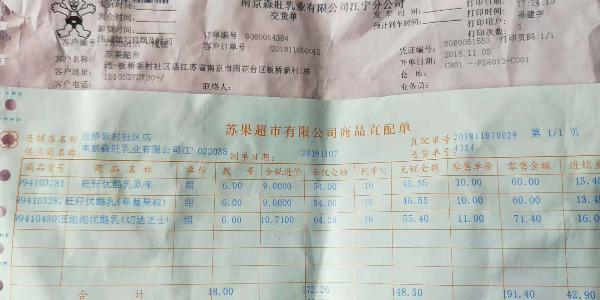 南京森旺乳业有限公司江宁分公司
交货单
订单编号: 9080054384
客户订单号: 201811050012
苏果超市
客户地址:
凭证编号: 8080051553
打印次数
打印页: 1/1
开单日期: 2018.11.05
仓库: C801 --F58013-C001
业务员:
苏果超市有限公司商品直配单
连锁店名称: 板桥新村社区店
直配单号: 201811070029 第 1/1 页
供应商名称: 南京森旺乳业有限公司江 022038 制单日期: 20181107
4384
商品货号 商品名称 单位 数 含税进价 含税金额 税率% 无税金额 零售单价 零售金额
99410328 旺仔优酪乳原味 组 6.00 9.0000 54.00 16 46.55 10.00 60.00 13.45
99410328 旺仔优酪乳(草莓果粒) 组 6.00 9.0000 54.00 16 46.55 10.00 60.00 13.45
99410430 旺泡泡优酪乳(切达芝士) 组 6.00 10.7100 64.26 16 55.40 11.90 71.40 16.0
合计 18.00 172.26 148.50 191.40 42.90